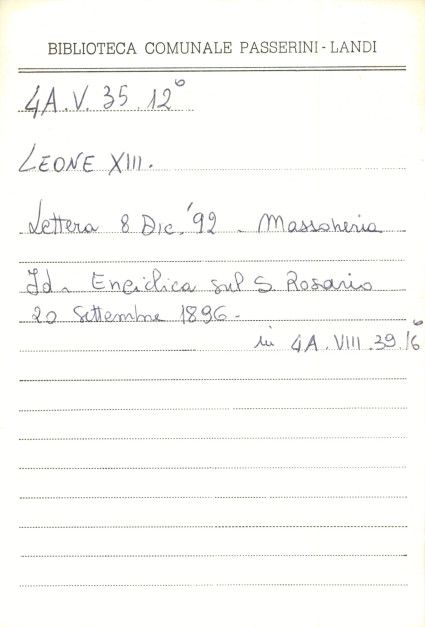 BIBLIOTECA COMUNALE PASSERINI-LANDI
4A.V. 35.12°
LEONE XIII.
Lettera 8 Dic. '92 - Massoneria
Id. Enciclica sul S. Rosario
20 Settembre 1896-
in 4A.VIII.39.16°